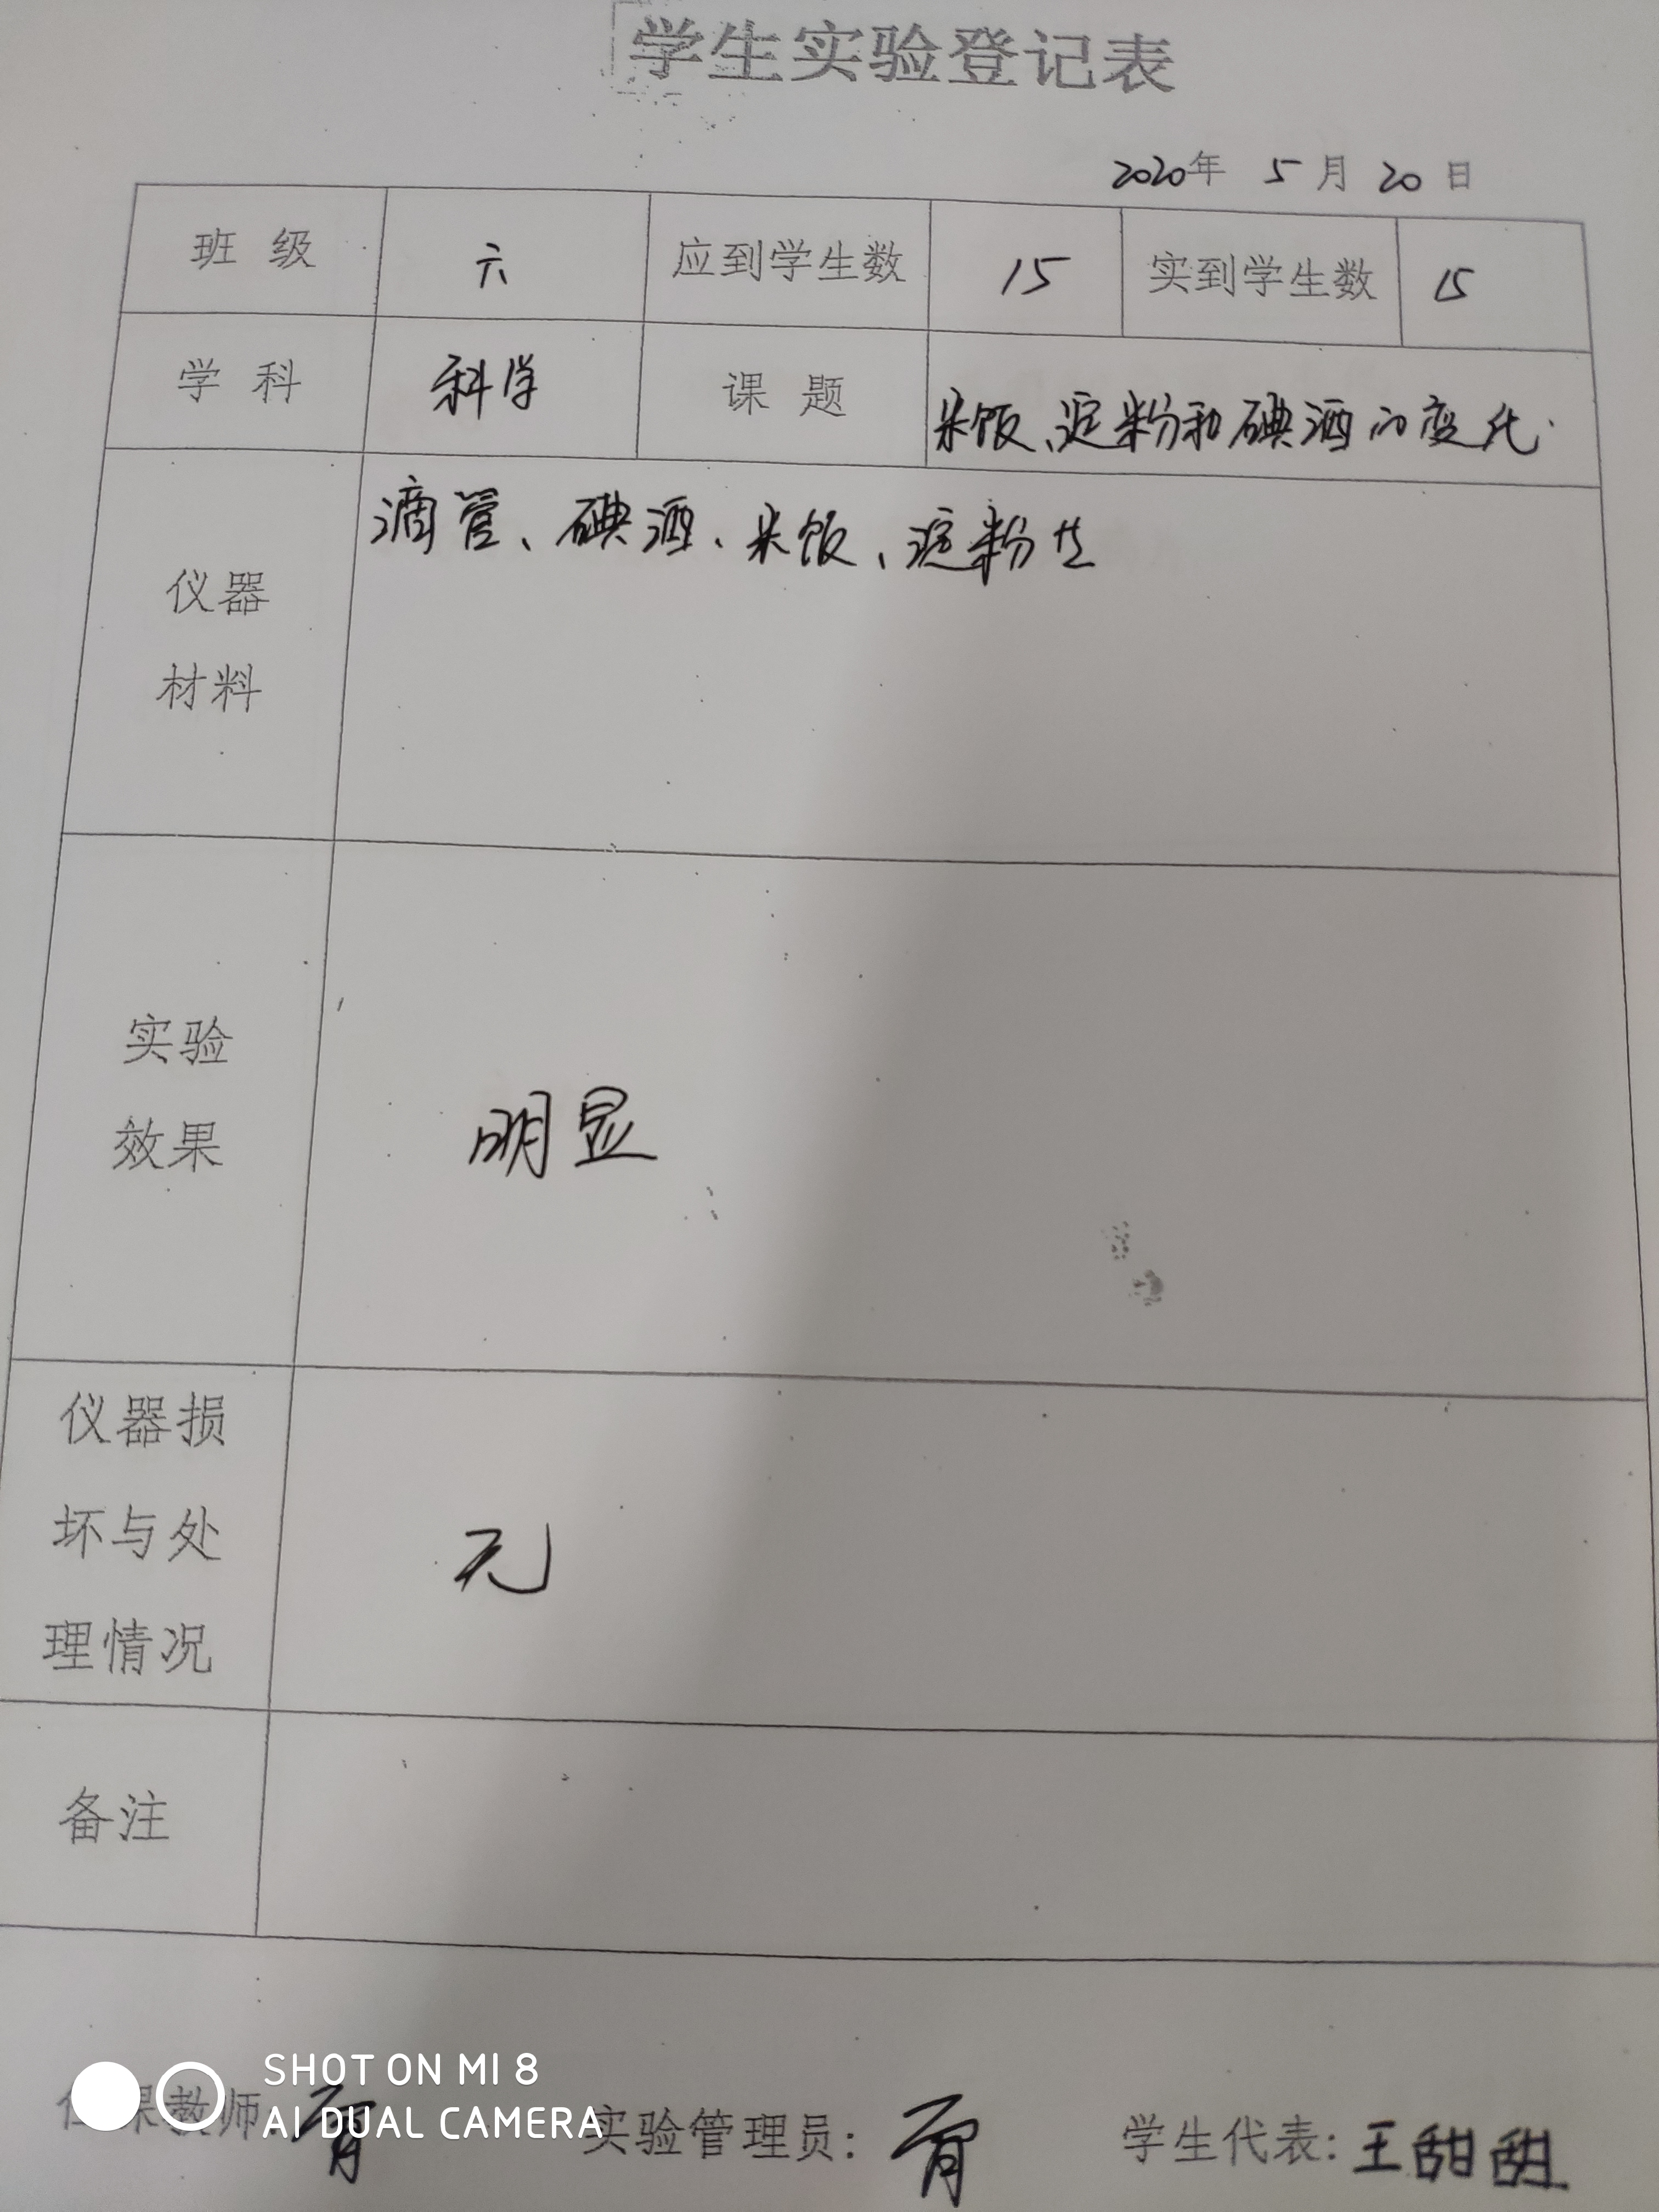 学生实验登记表
2020年 5月 20日
班 级 六 应到学生数 15 实到学生数 15
学 科 科学 课 题 米饭、淀粉和碘酒的变化.
仪器
材料
滴管、碘酒、米饭、淀粉
实验
效果
明显
仪器损
坏与处
理情况
无
备注
SHOT ON MI 8
AI DUAL CAMERA
任课教师:
实验管理员:
学生代表: 王甜甜